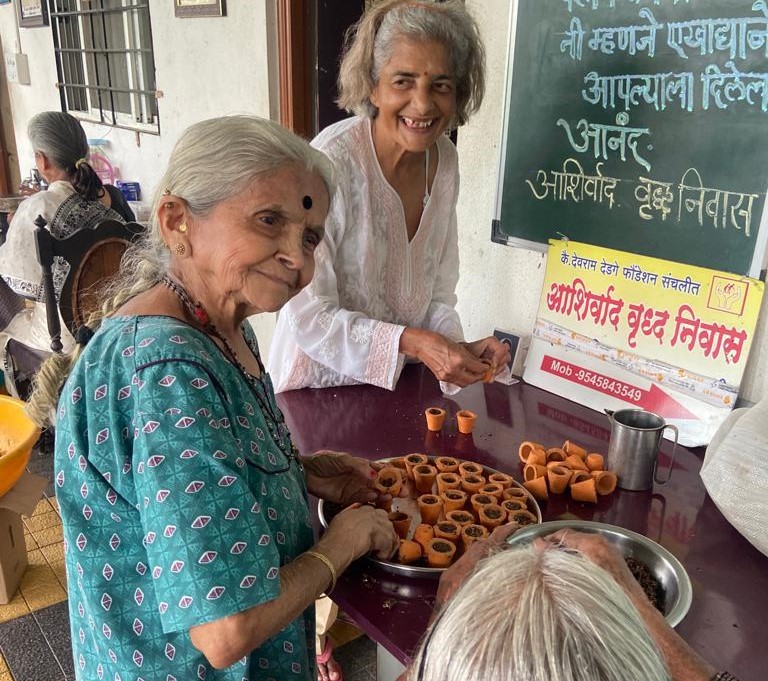 ती म्हणजे एखाद्याने
आपल्याला दिलेल
आनंद.
आशिर्वाद वृद्ध निवास
कै. देवराम देडगे फौंडेशन संचलीत
आशिर्वाद वृध्द निवास
Mob -9545843549